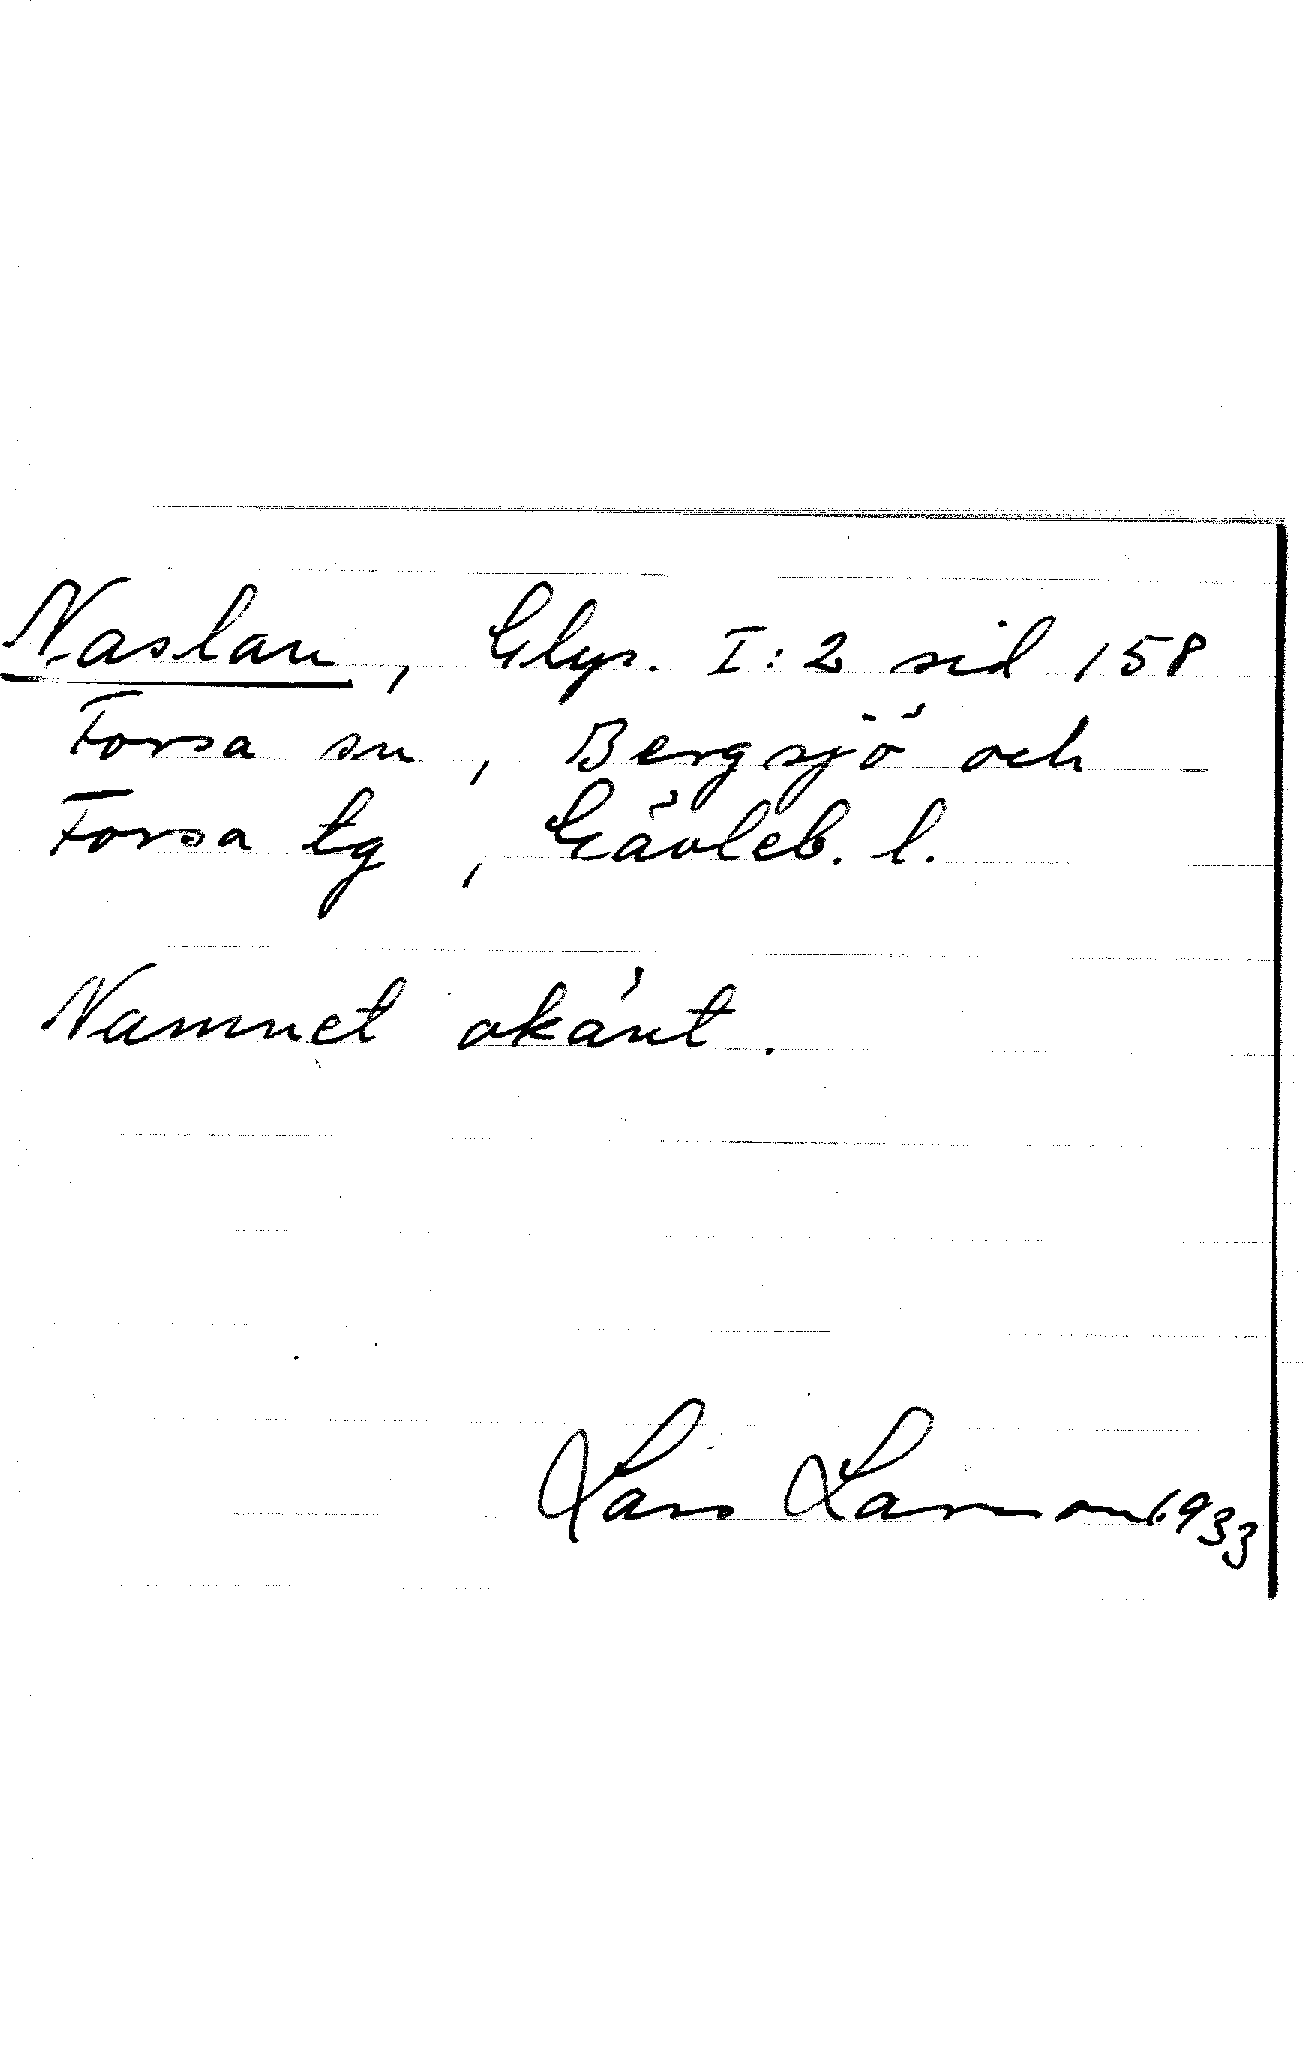 Naslan, Glyr. I:2 sid 158
Forsa sn, Bergsjö och
Forsa tg, Gävleb. l.
Namnet okänt.
Lars Larsson 1933